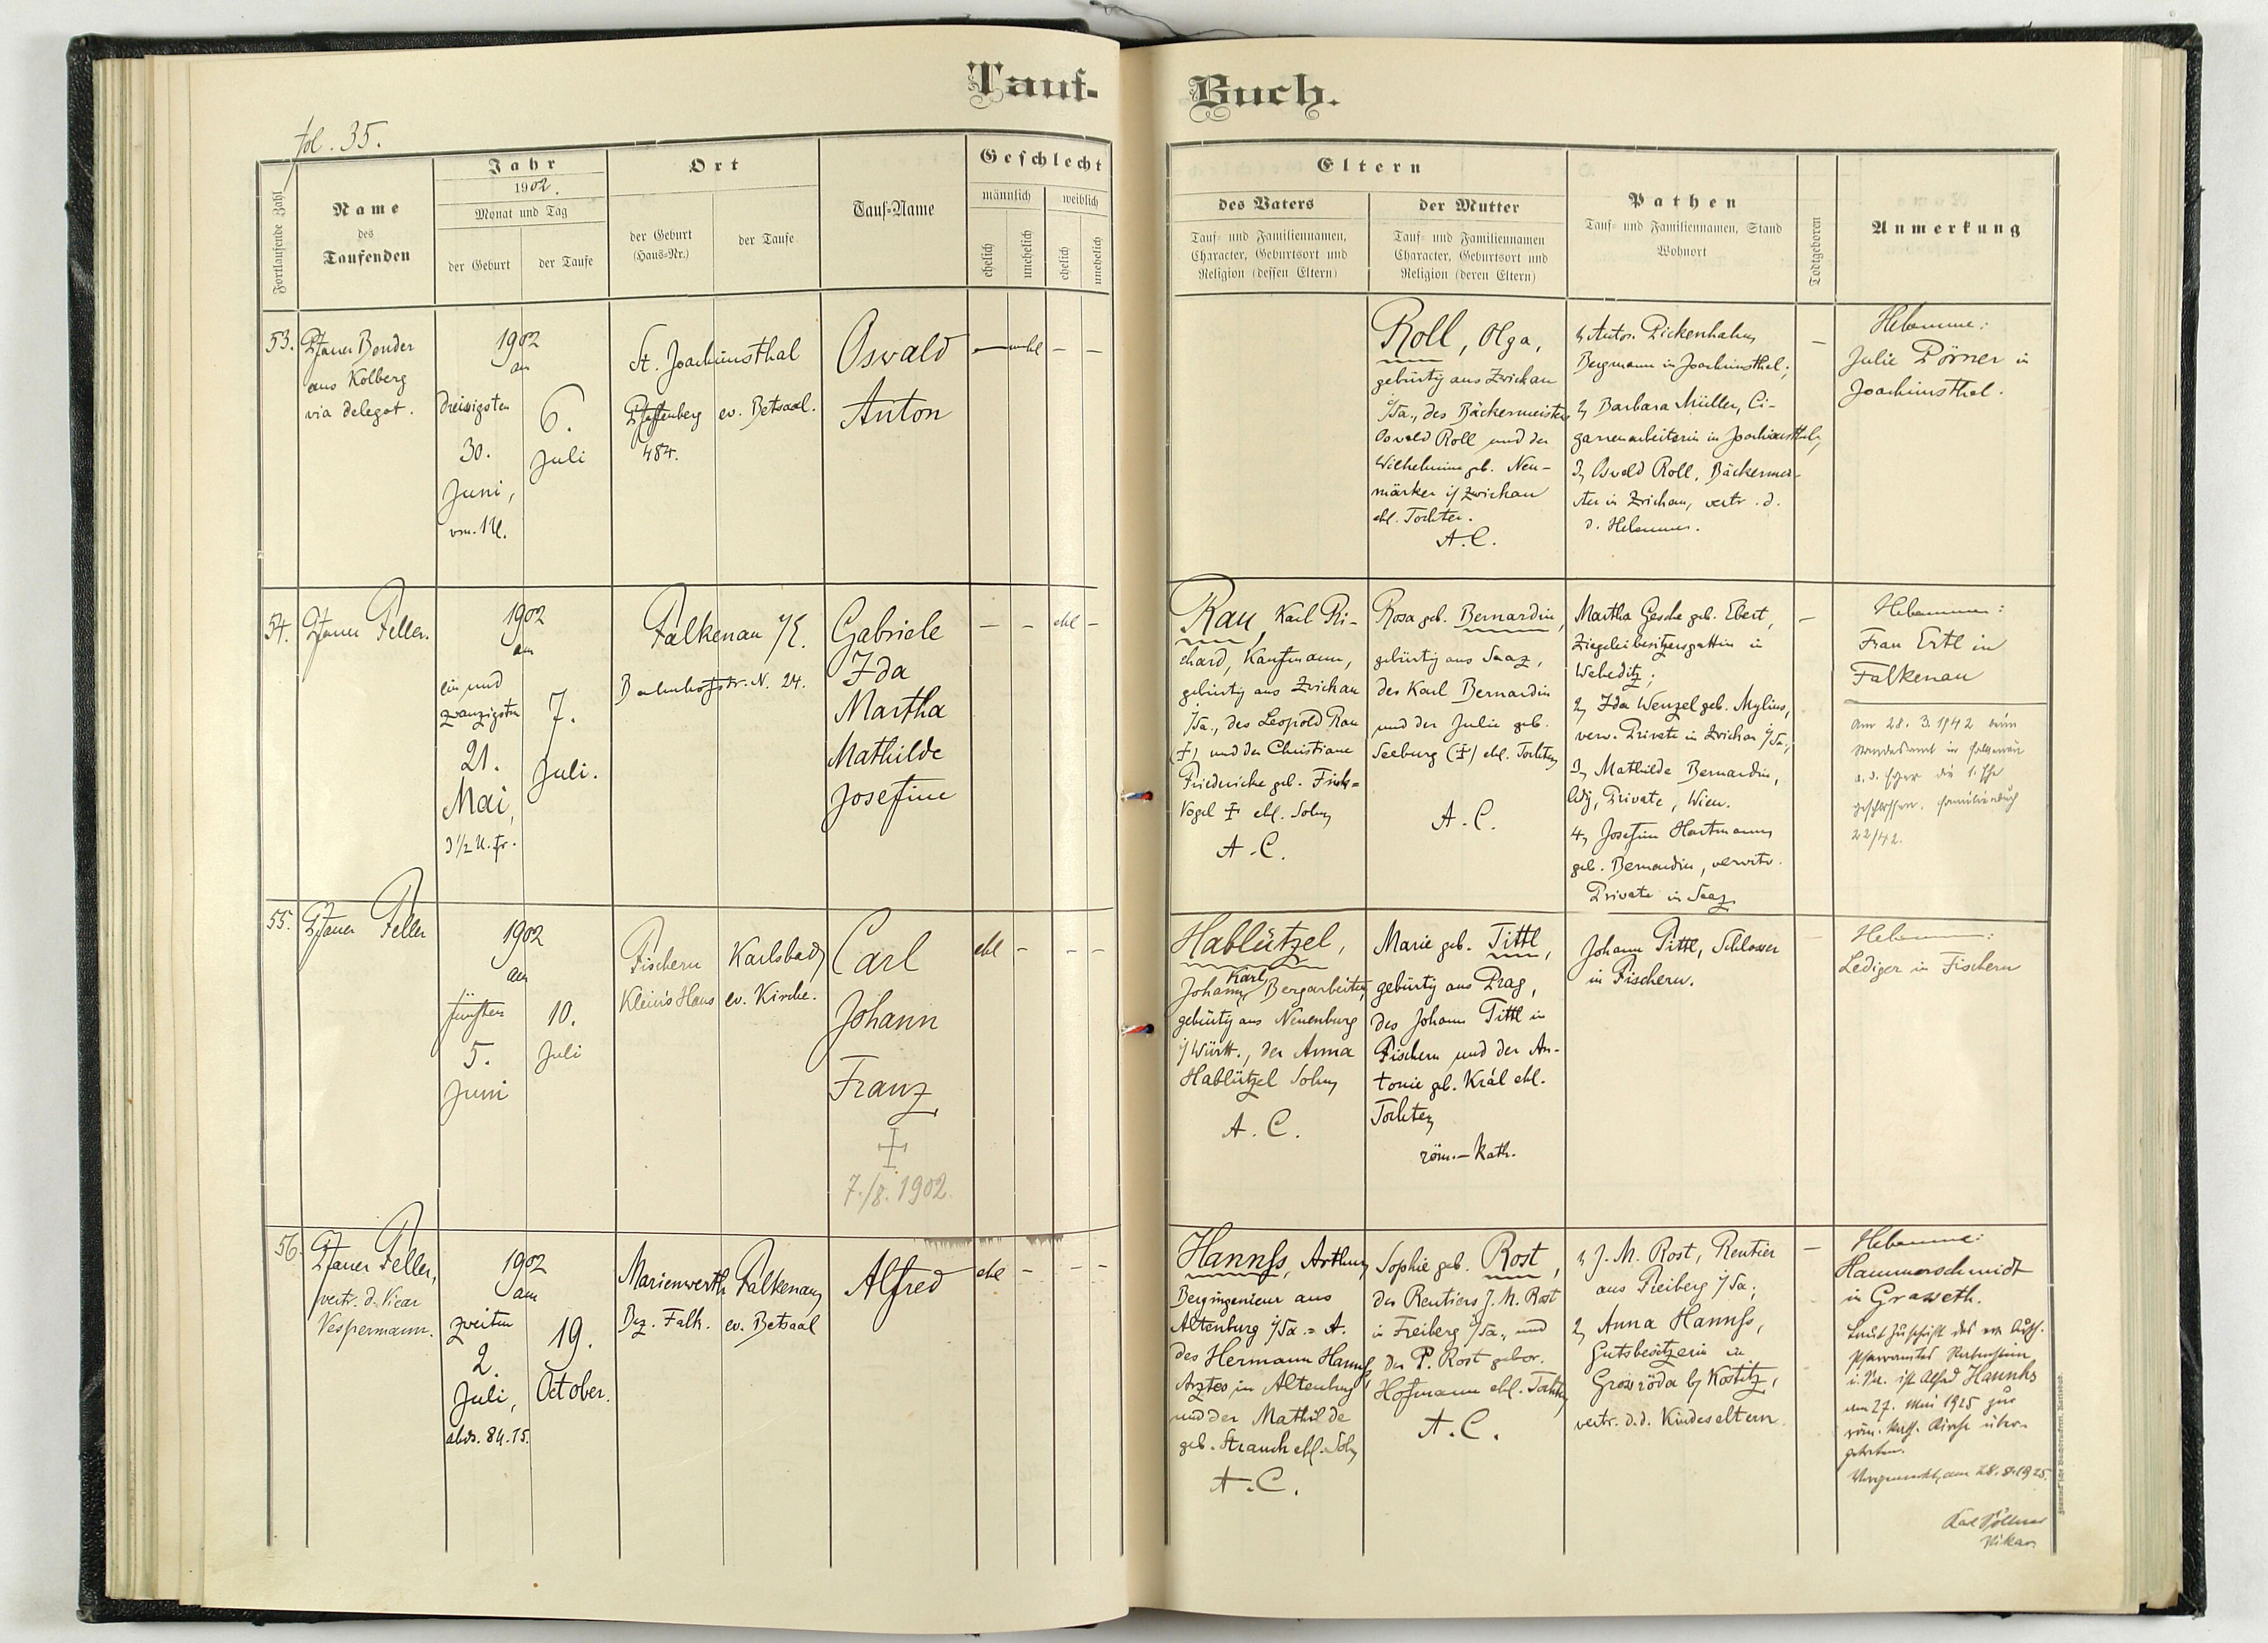 Tauf-
Buch.
fol. 35.
Fortlaufende Zahl
Name
des
Taufenden
Jahr
1902.
Monat und Tag
der Geburt
der Taufe
Ort
der Geburt
(Haus-Nr.)
der Taufe
Tauf-Name
Geschlecht
männlich
weiblich
ehelich
unehelich
ehelich
unehelich
Eltern
des Vaters
Tauf- und Familiennamen,
Character, Geburtsort und
Religion (dessen Eltern)
der Mutter
Tauf- und Familiennamen
Character, Geburtsort und
Religion (deren Eltern)
Pathen
Tauf- und Familiennamen, Stand
Wohnort
Todtgeboren
Anmerkung
53.
Pfarrer Bender
aus Kolberg
via delegat.
1902
am
dreissigsten
30.
Juni,
vm. 1 U.
6.
Juli
St. Joachimsthal
Pfaffenberg
484.
ev. Betsaal.
Oswald
Anton
— unehl — —
Roll, Olga,
gebürtig aus Zwickau
i/Sa., des Bäckermeisters
Oswald Roll und der
Wilhelmine geb. Neu-
märker i/ Zwickau
ehl. Tochter.
A. C.
1, Anton Pickenhahn,
Bergmann in Joachimsthal;
2, Barbara Müller, Ci-
garrenarbeiterin in Joachimsthal,
3, Oswald Roll, Bäckermei-
ster in Zwickau, vertr. d.
d. Hebamme.
—
Hebamme:
Julie Pörner in
Joachimsthal.
54.
Pfarrer Feller.
1902
am
ein und
zwanzigsten
21.
Mai,
3 1/2 U. fr.
7.
Juli.
Falkenau a/E.
Bahnhofstr. N. 24.
Gabriele
Ida
Martha
Mathilde
Josefine
— — ehl —
Rau, Karl Ri-
chard, Kaufmann,
gebürtig aus Zwickau
i/Sa., des Leopold Rau
(†) und der Christiane
Friedericke geb. Fink=
Vogel † ehl. Sohn
A. C.
Rosa geb. Bernardin,
gebürtig aus Saaz,
des Karl Bernardin
und der Julie geb.
Seeburg (†) ehl. Tochter
A. C.
Martha Gesche geb. Ebert,
Ziegeleibesitzersgattin in
Weheditz;
2, Ida Wenzel geb. Mylius,
verw. Private in Zwickau i/Sa;
3, Mathilde Bernardin,
ldg, Private, Wien.
4, Josefine Hartmann
geb. Bernardin, verwitw.
Private in Saaz
—
Hebamme:
Frau Ertl in
Falkenau
Am 28. 3. 1942 beim
Standesamt in Falkenau
a. d. Eger die 1. Ehe
geschlossen. Familienbuch
22/42.
55.
Pfarrer Feller
1902
am
fünften
5.
Juni
10.
Juli
Fischern
Klein's Haus
Karlsbad
ev. Kirche.
Carl
Johann
Franz
†
7./8. 1902.
ehl — — —
Hablützel,
Karl
Johann, Bergarbeiter,
gebürtig aus Neuenburg
i/ Württ., der Anna
Hablützel Sohn
A. C.
Marie geb. Tittl,
gebürtig aus Prag,
des Johann Tittl in
Fischern und der An-
tonie geb. Král ehl.
Tochter
röm. - Kath.
Johann Tittl, Schlosser
in Fischern.
Hebamme:
Lediger in Fischern
56.
Pfarrer Feller,
vertr. d. Vicar
Vespermann.
1902
am
zweiten
2.
Juli,
abds. 8 U. 15.
19.
October.
Marienwerth
Bez. Falk.
Falkenau
ev. Betsaal
Alfred
ehl — — —
Hannfs, Arthur
Bergingenieur aus
Altenburg i/Sa.= A.
des Hermann Hannfs,
Arztes in Altenburg
und der Mathilde
geb. Strauch ehl. Sohn
A. C.
Sophie geb. Rost,
des Rentiers J. M. Rost
in Freiberg i/Sa., und
der P. Rost gebor.
Hofmann ehl. Tochter
A. C.
1, J. M. Rost, Rentier
aus Freiberg i/Sa;
2, Anna Hannfs,
Gutsbesitzerin in
Grossröda b/ Kostitz,
vertr. d. d. Kindeseltern
—
Hebamme:
Hammerschmidt
in Grasseth.
Laut Zuschrift des
ist Alfred Hannhs
am 27. Mai 1925 zur
röm. kath. Kirche über-
getreten.
am 28. 8. 1925.
Vikar